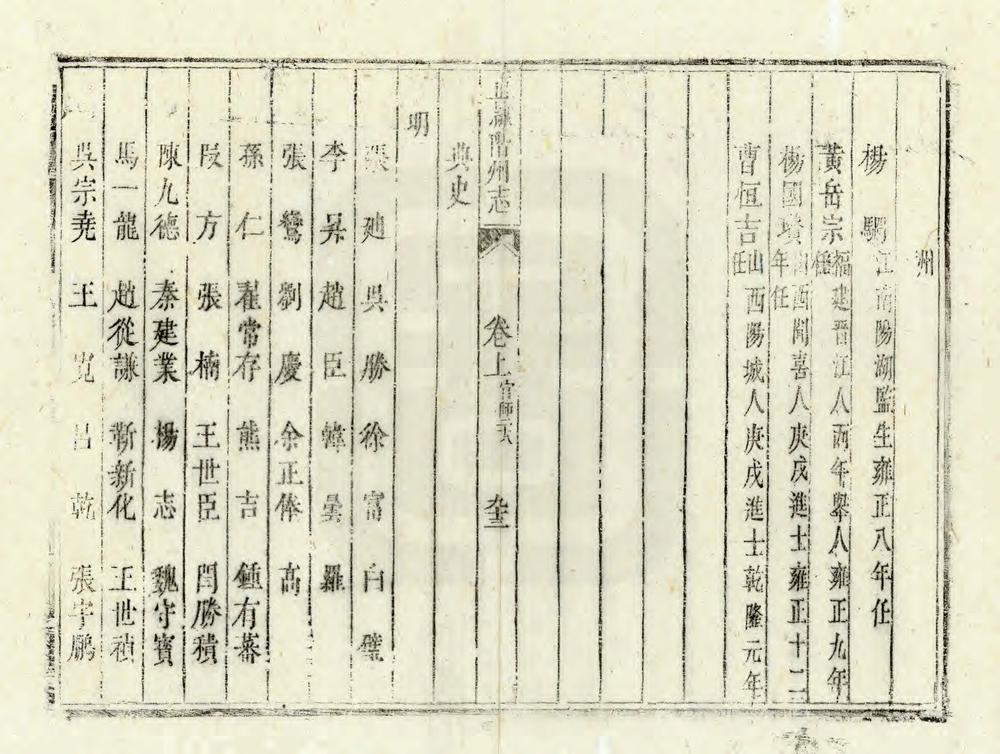 州
楊 江南陽湖監生雍正八年任
黃岳宗 福建晋江人丙午舉人雍正九年任
楊國瓚 山西聞喜人庚戌進士雍正十二年任
曹恒吉 山西陽城人庚戌進士乾隆元年任
直隸階州志 卷上 官師 九十三
典史
明
張 廸 吳 勝 徐 富 白 璧
李 昇 趙 臣 韓 曇 羅
張 鸞 劉 慶 余正俸 高
孫 仁 翟常存 熊 吉 鍾有蕃
段 方 張 楠 王世臣 閆勝積
陳九德 秦建業 楊 志 魏守寶
馬一龍 趙從謙 靳新化 王世禎
吳宗堯 王 寛 呂 乾 張宇鵬